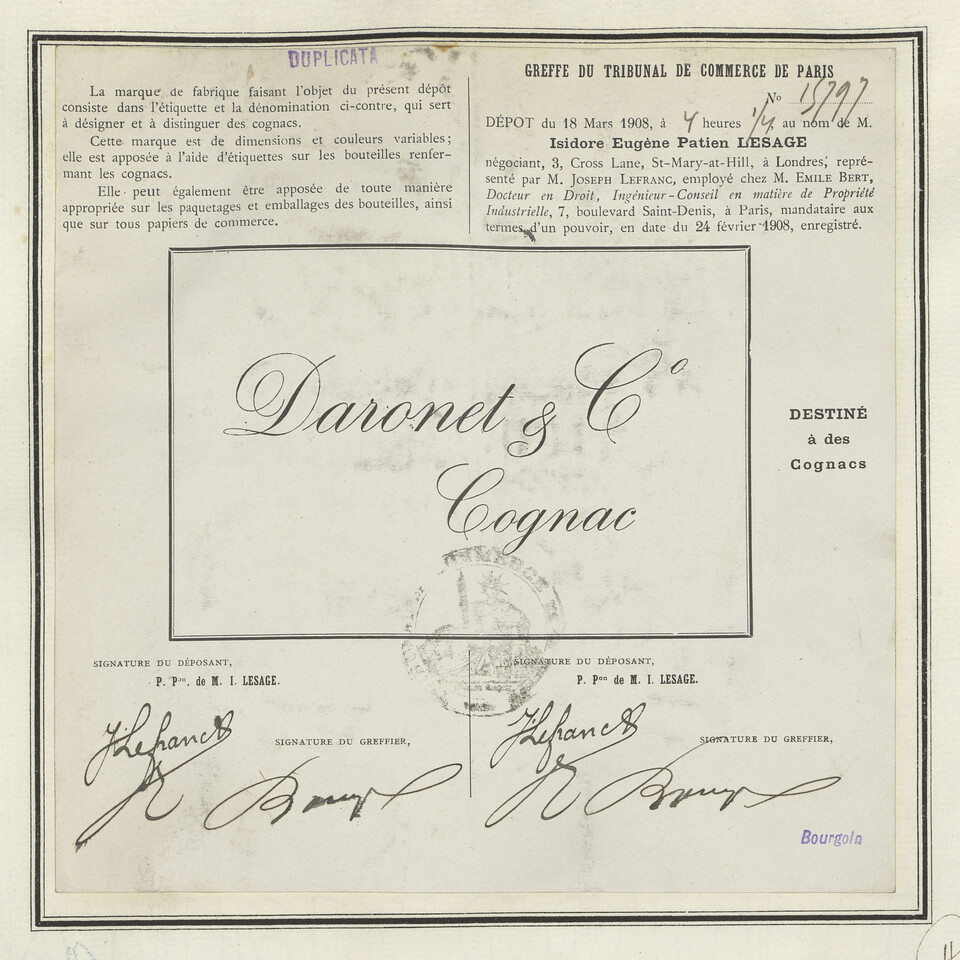 DUPLICATA
La marque de fabrique faisant l'objet du présent dépôt
consiste dans l'étiquette et la dénomination ci-contre, qui sert
à désigner et à distinguer des cognacs.
Cette marque est de dimensions et couleurs variables;
elle est apposée à l'aide d'étiquettes sur les bouteilles renfer-
mant les cognacs.
Elle peut également être apposée de toute manière
appropriée sur les paquetages et emballages des bouteilles, ainsi
que sur tous papiers de commerce.
GREFFE DU TRIBUNAL DE COMMERCE DE PARIS
No 15797
DÉPOT du 18 Mars 1908, à 4 heures 1/4, au nom de M.
Isidore Eugène Patien LESAGE
négociant, 3, Cross Lane, St-Mary-at-Hill, à Londres, repré-
senté par M. JOSEPH LEFRANC, employé chez M. EMILE BERT,
Docteur en Droit, Ingénieur-Conseil en matière de Propriété
Industrielle, 7, boulevard Saint-Denis, à Paris, mandataire aux
termes d'un pouvoir, en date du 24 février 1908, enregistré.
Daronet & Co
Cognac
DESTINÉ
à des
Cognacs
COMMERCE
SIGNATURE DU DÉPOSANT,
P. Pon. de M. I. LESAGE.
JLefranc
SIGNATURE DU GREFFIER,
SIGNATURE DU DÉPOSANT,
P. Pon de M. I. LESAGE.
JLefranc
SIGNATURE DU GREFFIER,
Bourgoin